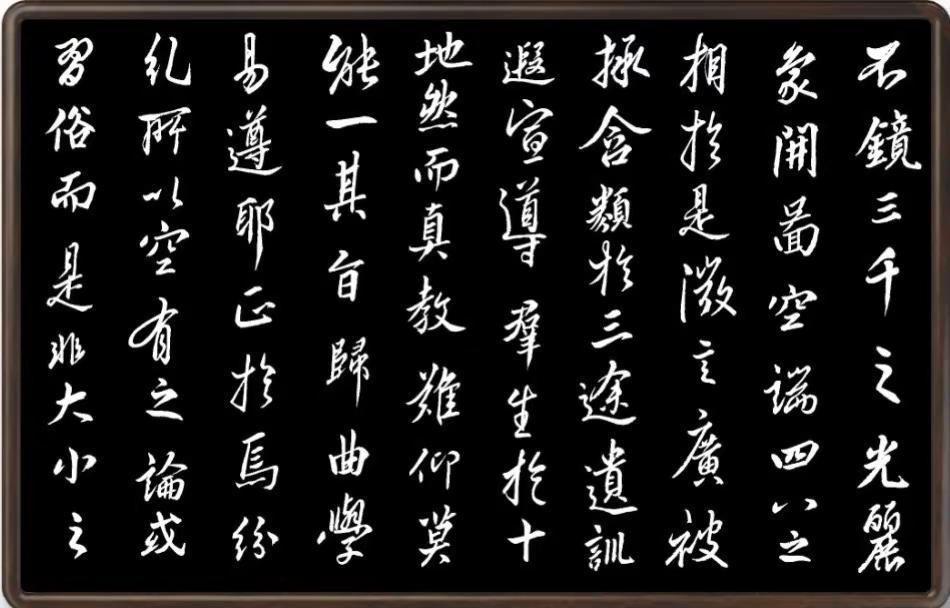 不鏡三千之光麗
象開圖空端四八之
相於是微言廣被
拯含類於三途遺訓
遐宣導羣生於十
地然而真教難仰莫
能一其旨歸曲學
易遵耶正於焉紛
糺所以空有之論或
習俗而是非大小之